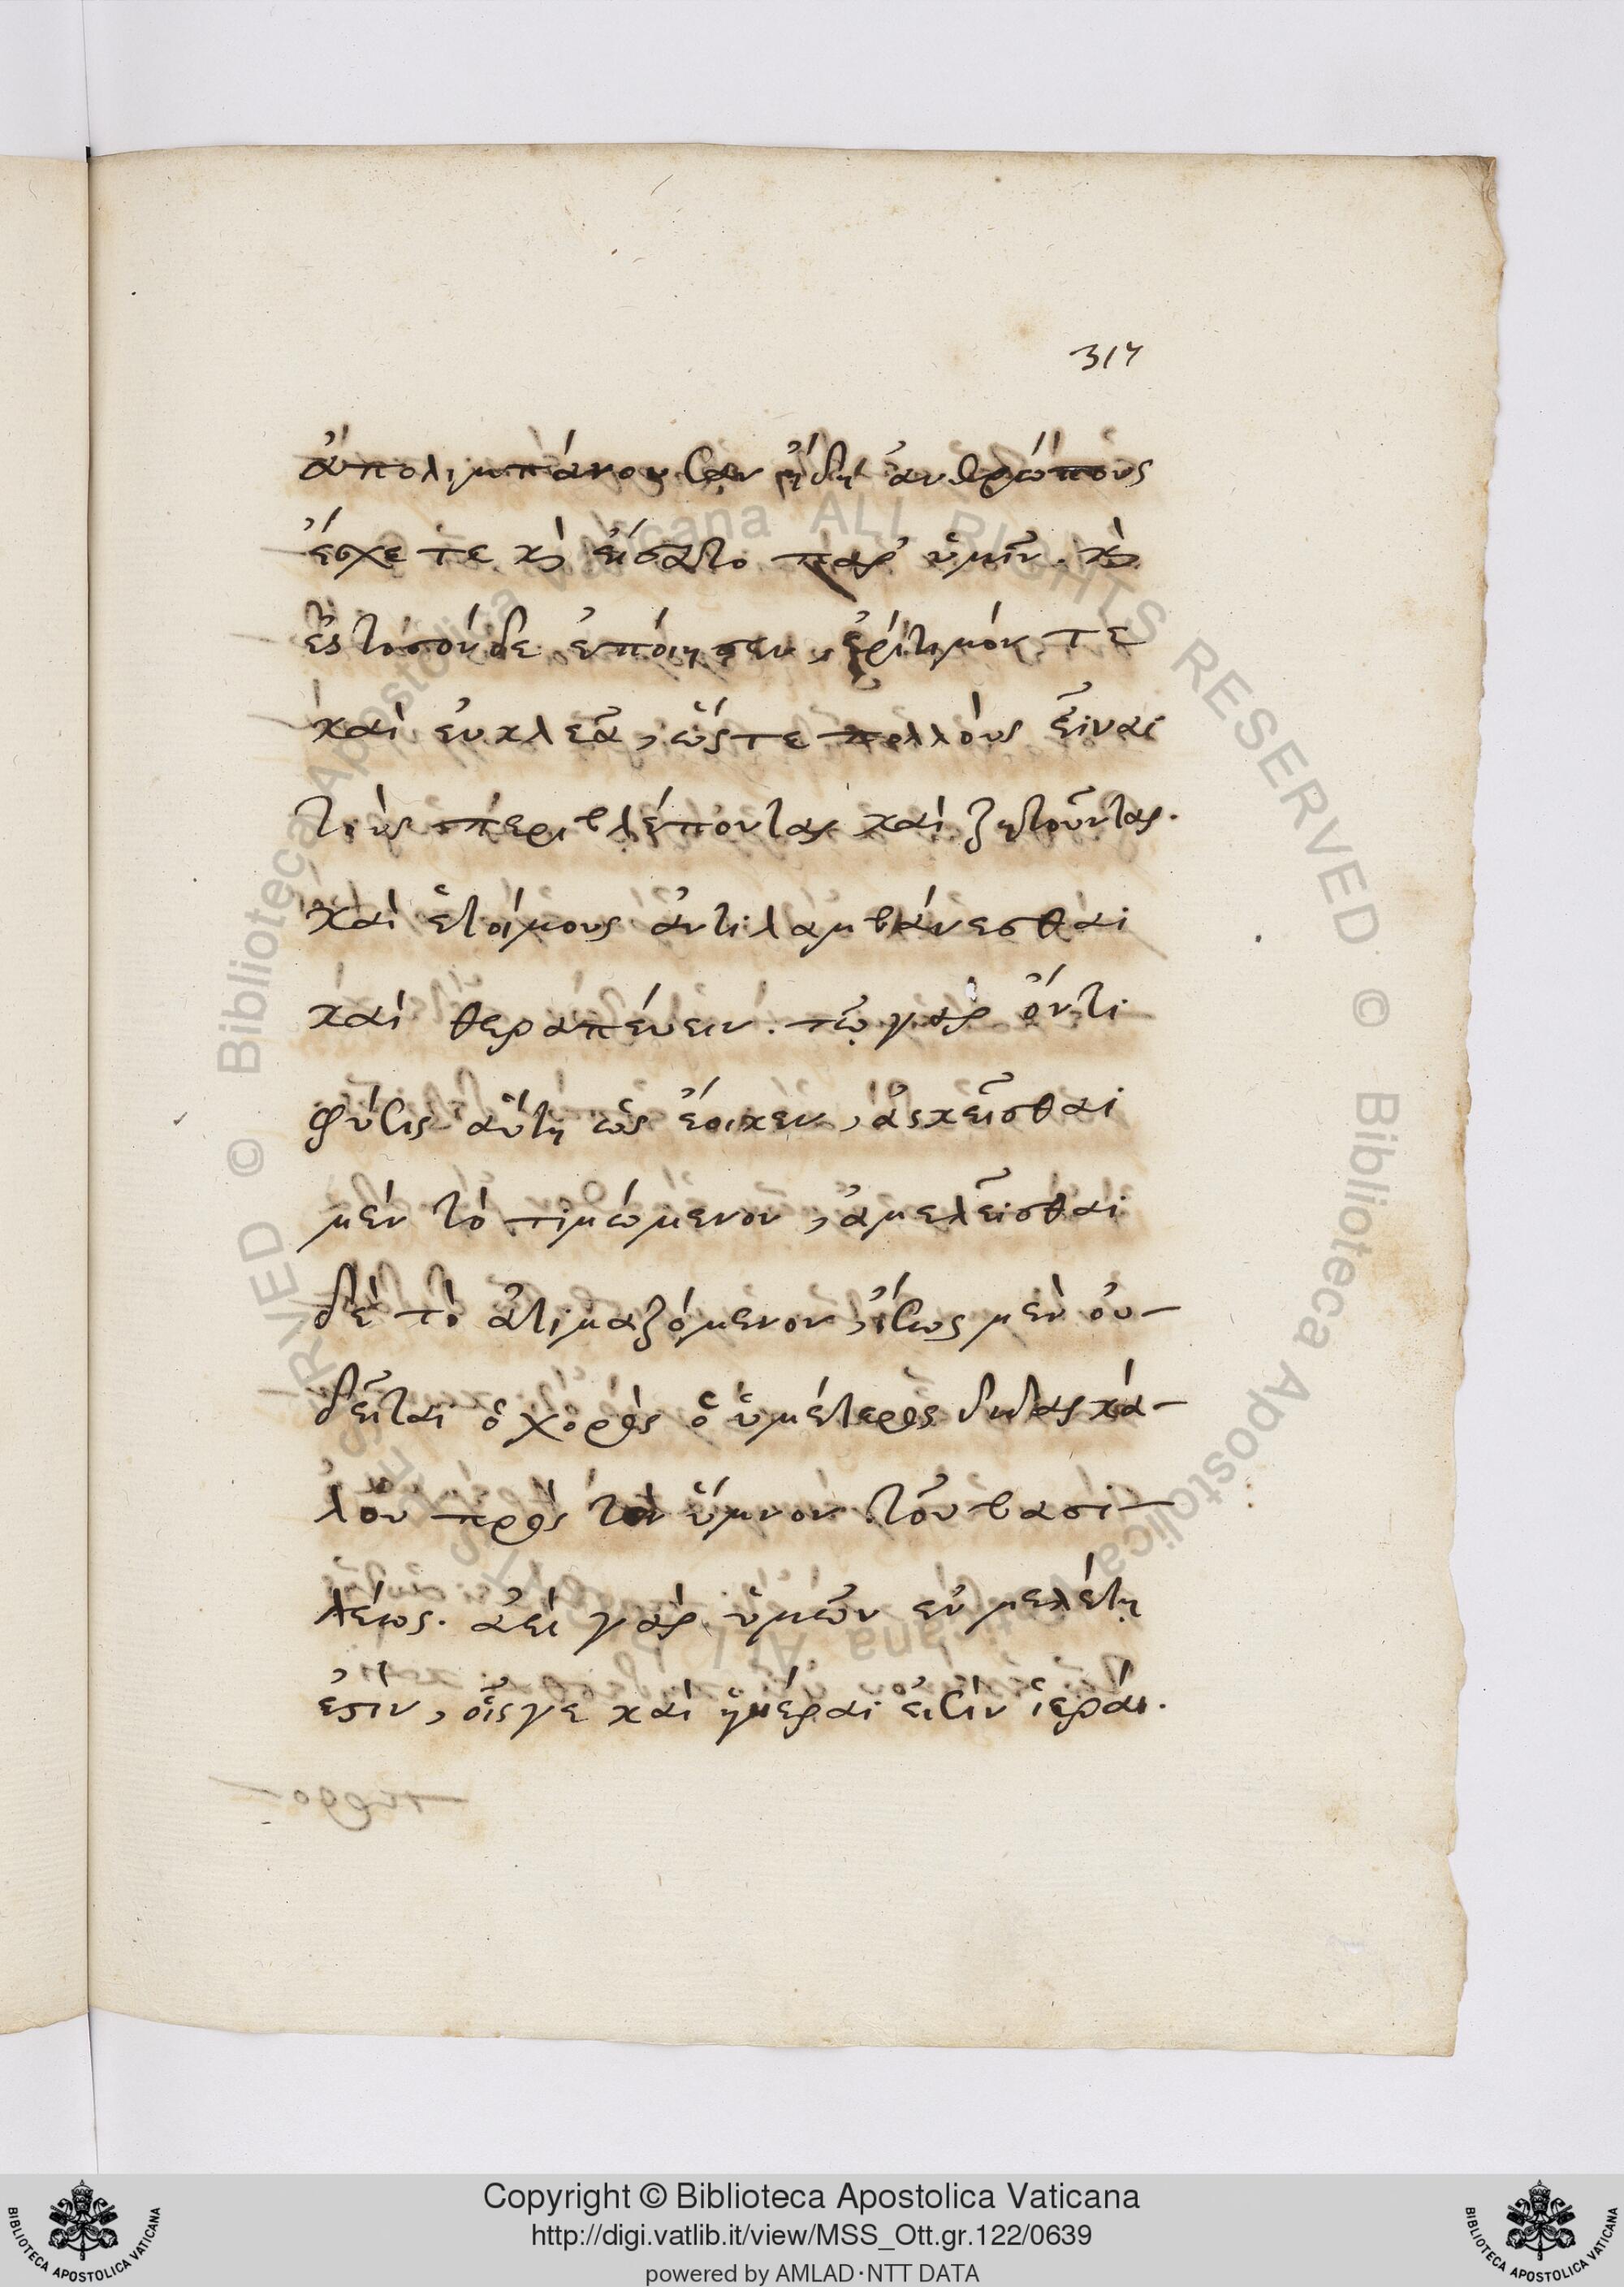 317
ἀπολιμπάνουσαν ἤδη ἀνθρώπους
ἔσχε τε κὶ εἵσατο παρ' ὑμῖν. κὶ
ἐς τοσόνδε ἐποίησεν, ἐρίτιμόν τε
καὶ εὐκλεᾶ, ὥςτε πολλοὺς εἶναι
τοὺς περιβλέποντας καὶ ζητοῦντας.
καὶ ἑτοίμους ἀντιλαμβάνεσθαι
καὶ θεραπεύειν. τῷ γὰρ ὄντι
φύσις αὕτη ὡς ἔοικεν, ἀσκεῖσθαι
μὲν τὸ τιμώμενον, ἀμελεῖσθαι
δὲ τὸ ἀτιμαζόμενον, ἴσως μὲν οὐ-
δεῖται ὁ χορὸς ὁ ὑμέτερος διδασκά-
λου πρὸς τὸν ὕμνον τοῦ βασι-
λέως. ἀεὶ γὰρ ὑμῶν ἐν μελέτῃ
ἐστὶν, οἷς γε καὶ ἡμέραι εἰσὶν ἱεραὶ.
Copyright © Biblioteca Apostolica Vaticana
http://digi.vatlib.it/view/MSS_Ott.gr.122/0639
powered by AMLAD·NTT DATA
BIBLIOTECA APOSTOLICA VATICANA
BIBLIOTECA APOSTOLICA VATICANA